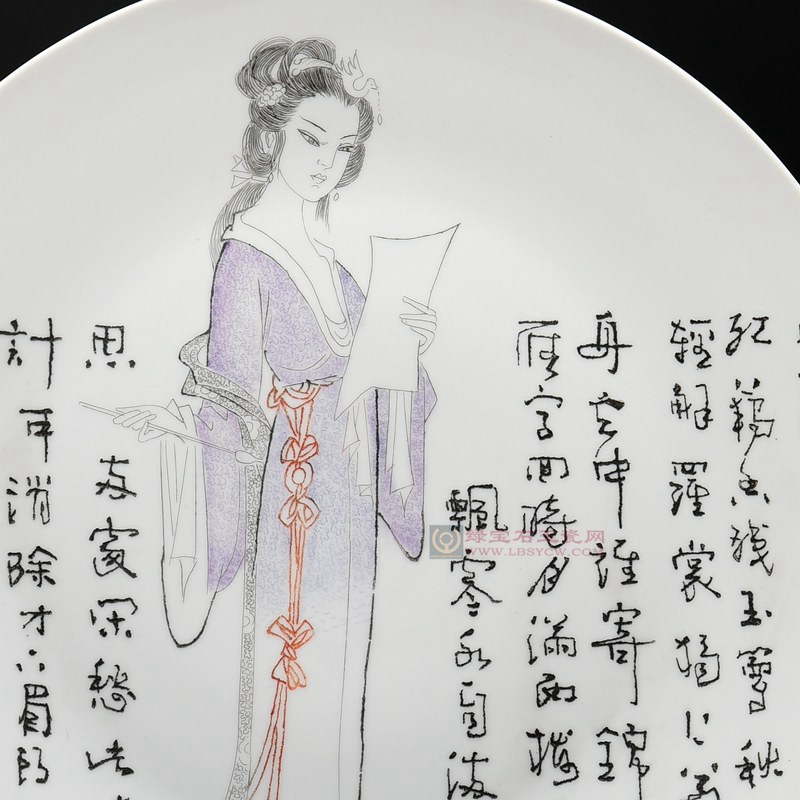 红藕香殘玉簟秋
輕解羅裳獨上
舟云中誰寄錦
雁字回時月滿西樓
飄零水自流
思兩處閑愁此
計可消除才下眉頭
绿宝石瓷网
WWW.LBSYCW.COM